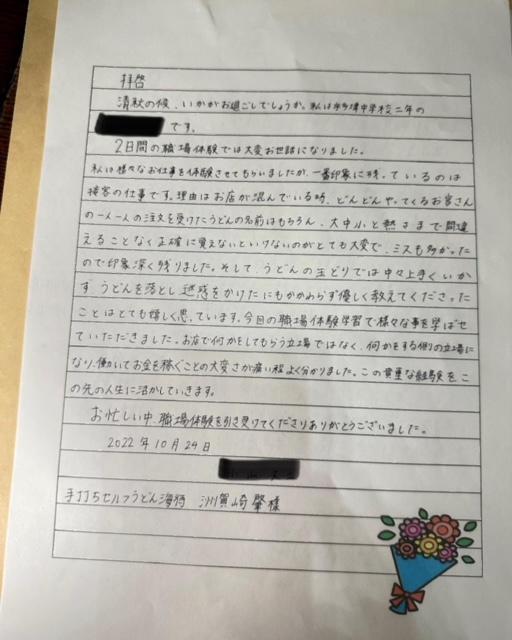 拝啓
清秋の候、いかがお過ごしでしょうか。私は中学校二年の
です。
2日間の職場体験では大変お世話になりました。
私は様々なお仕事を体験させてもらいましたが、一番印象に残っているのは
接客の仕事です。理由はお店が混んでいる時、どんどんやってくるお客さん
の一人一人の注文を受けたうどんの名前はもちろん、大中小と熱さまで間違
えることなく正確に覚えないといけないのがとても大変で、ミスも多かった
ので印象深く残りました。そして、うどんの玉どりでは中々上手くいか
ず、うどんを落とし迷惑をかけたにもかかわらず優しく教えてくださった
ことはとても嬉しく思っています。今回の職場体験学習で様々な事を学ばせ
ていただきました。お店で何かをしてもらう立場ではなく、何かをする側の立場に
なり、働いてお金を稼ぐことの大変さが痛い程よく分かりました。この貴重な経験をこ
の先の人生に活かしていきます。
お忙しい中、職場体験を引き受けてくださりありがとうございました。
2022年10月24日
手打ちセルフうどん海侍 洲賀崎 肇様